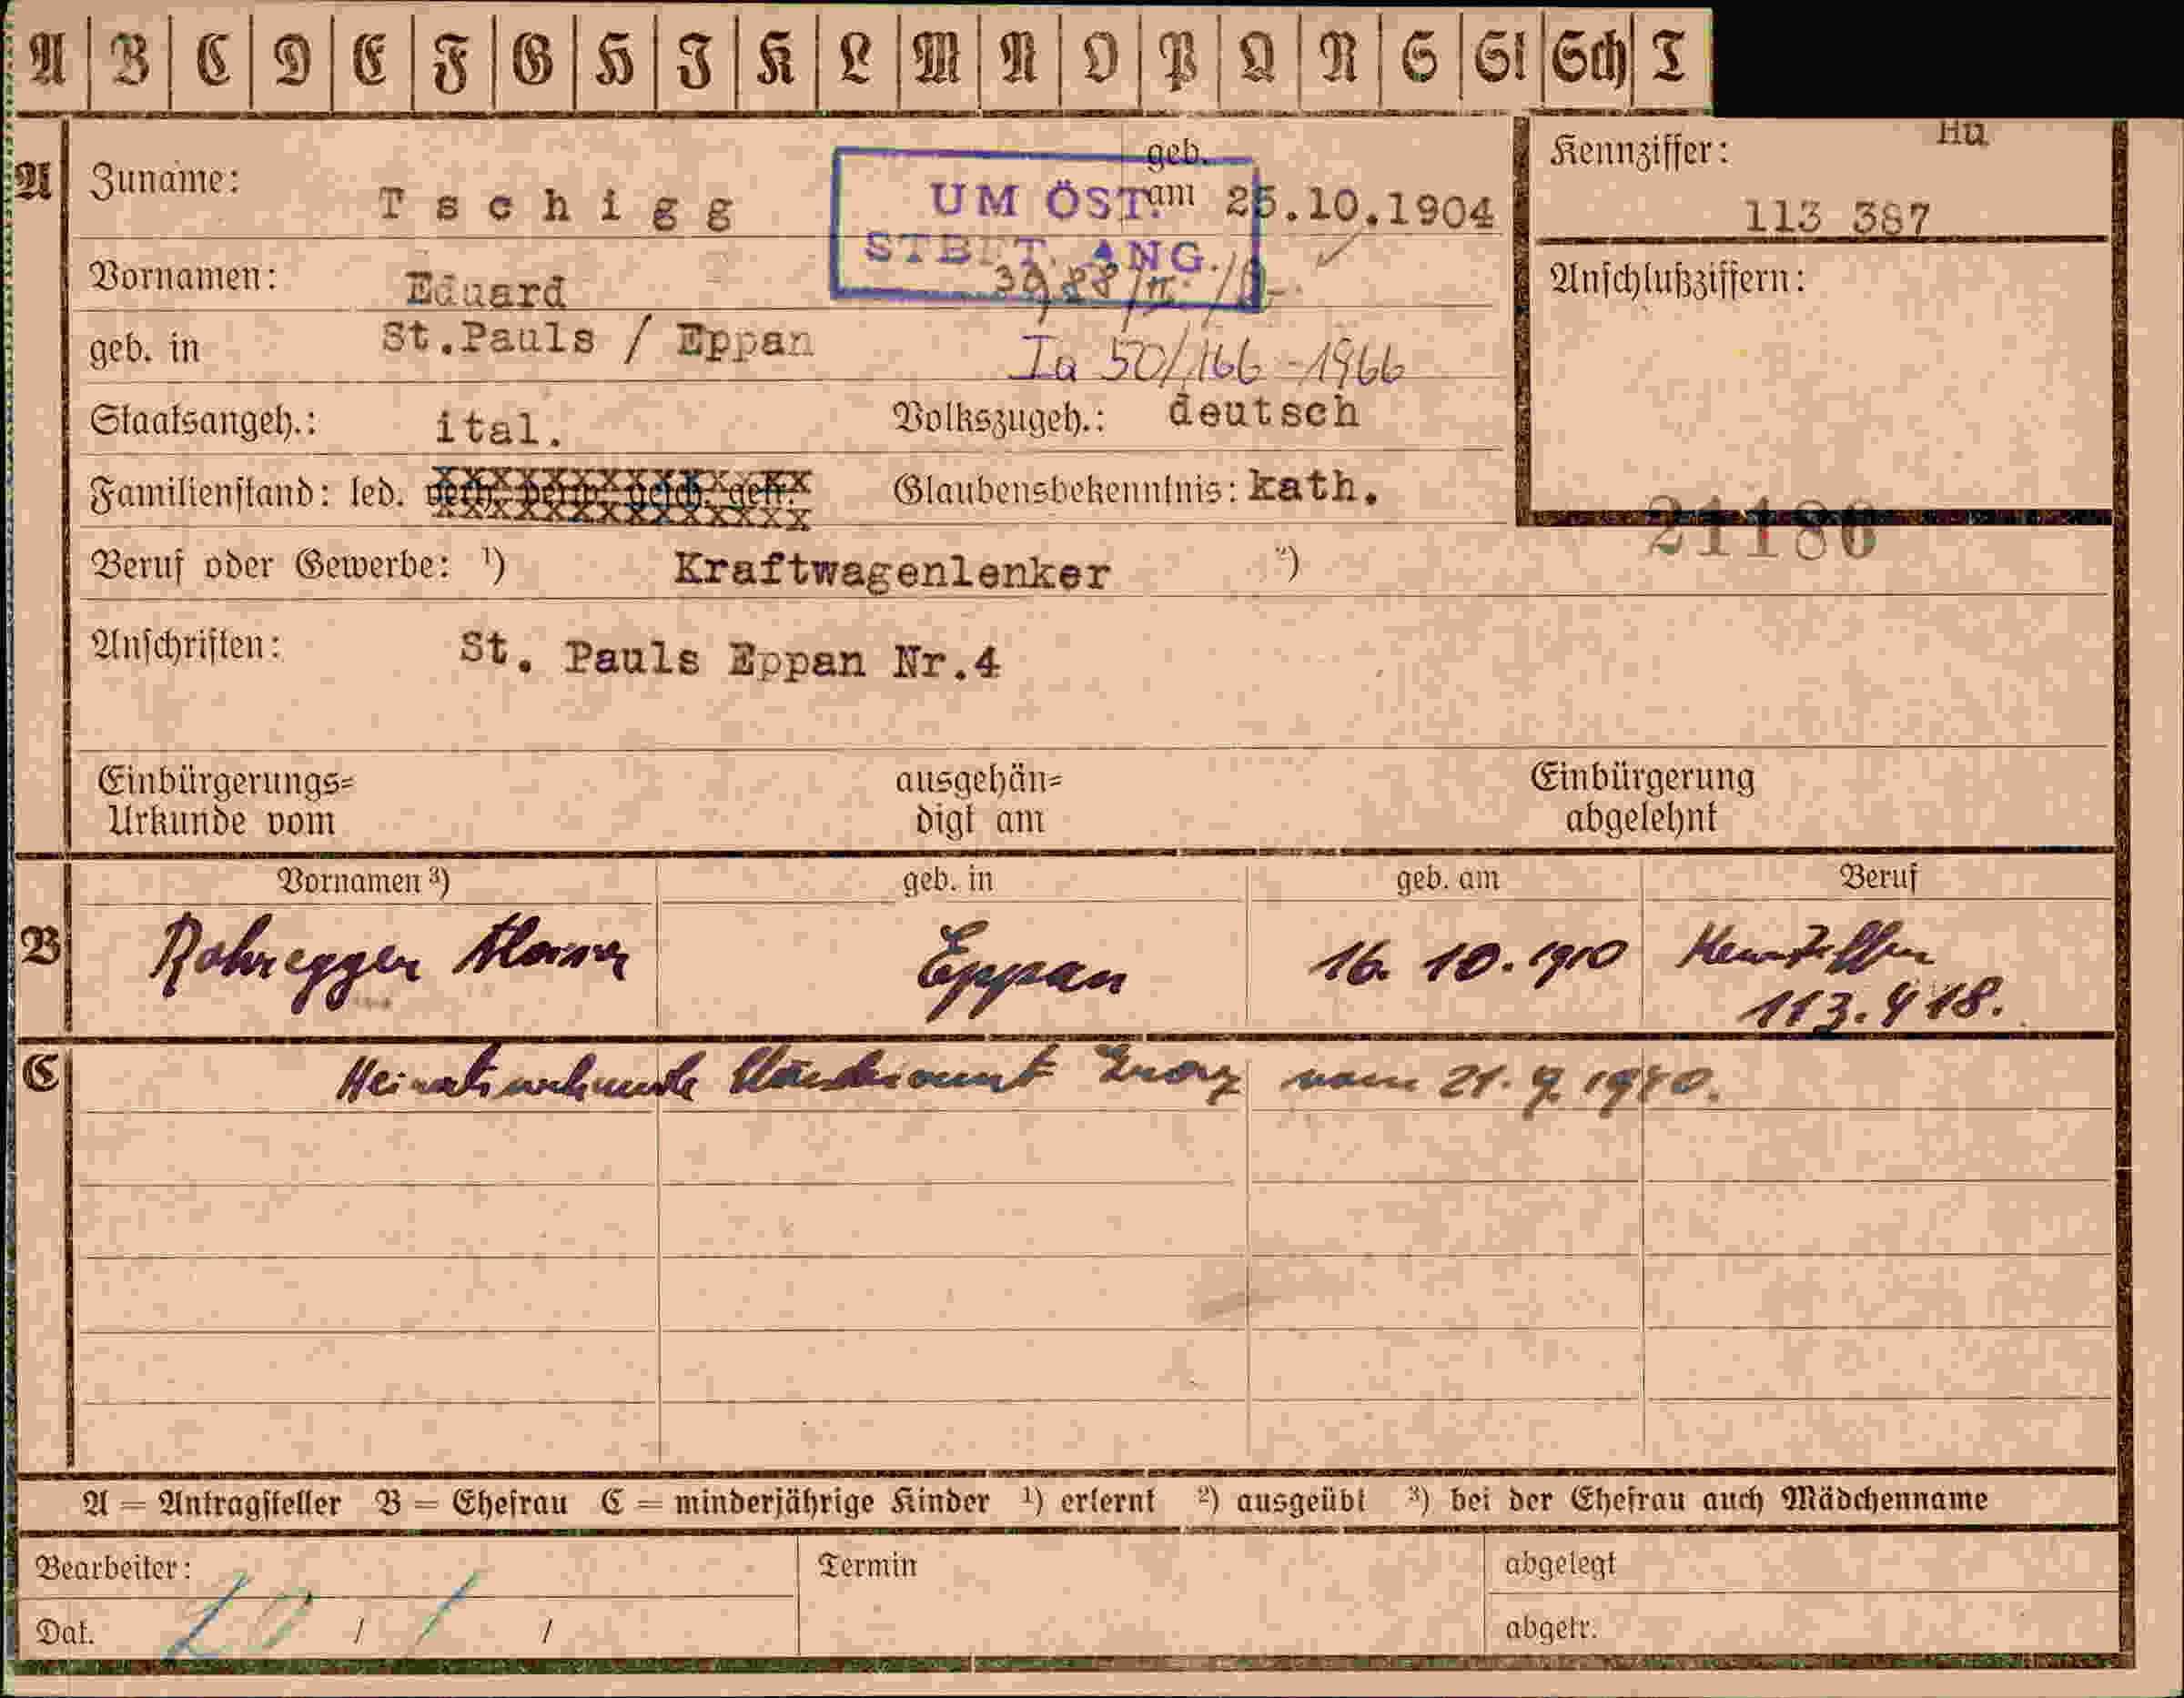 A B C D E F G H I K L M N O P Q R S St Sch T
Hu
A Zuname: Tschigg geb. am 25.10.1904
UM ÖST.
STBGT. ANG.
Kennziffer: 113 387
Vornamen: Eduard
Anschlußziffern:
geb. in St.Pauls / Eppan
Ia 50/166-1966
Staatsangeh.: ital. Volkszugeh.: deutsch
Familienstand: led. verh. verw. gesch. getr. Glaubensbekenntnis: kath.
21186
Beruf oder Gewerbe: ¹) Kraftwagenlenker ²)
Anschriften: St. Pauls Eppan Nr.4
Einbürgerungs= ausgehän= Einbürgerung
Urkunde vom digt am abgelehnt
Vornamen ³) geb. in geb. am Beruf
B Rohregger Eppan 16. 10. 1910 Kennziffer
113.418.
C Heiratsurkunde Standesamt vom 21. 9. 1940.
A = Antragsteller B = Ehefrau C = minderjährige Kinder ¹) erlernt ²) ausgeübt ³) bei der Ehefrau auch Mädchenname
Bearbeiter: Termin abgelegt
Dat. / / abgetr.